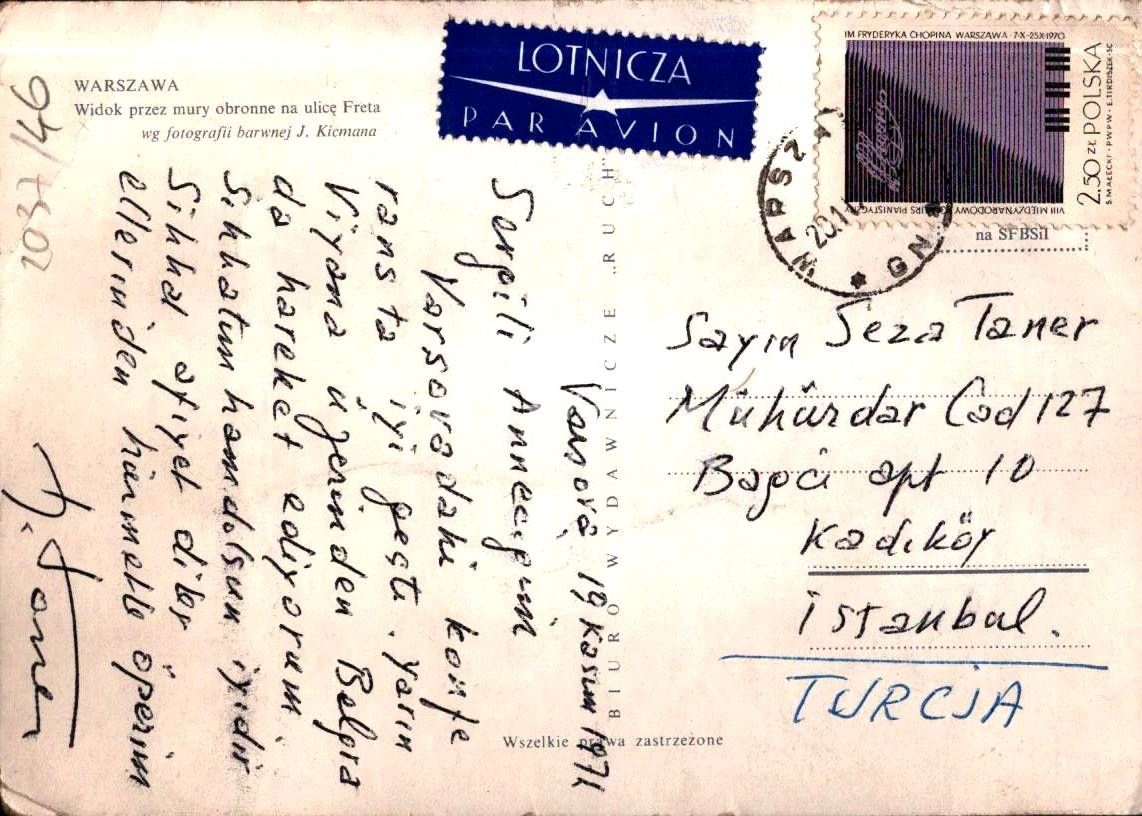 WARSZAWA
Widok przez mury obronne na ulicę Freta
wg fotografii barwnej J. Kicmana
2037/46
LOTNICZA
PAR AVION
IM FRYDERYKA CHOPINA WARSZAWA · 7·X-25·X·1970
VIII MIĘDZYNARODOWY KONKURS PIANISTYCZNY
2.50 ZŁ POLSKA
S. MAŁECKI · PWPW · E. TIRDISZEK · SC
na SFBSiI
BIURO WYDAWNICZE „RUCH"
Wszelkie prawa zastrzeżone
Varşova 19 Kasım 1971
Sevgili Annecığım
Varşovadaki konfe
rans ta iyi geçti. Yarın
Viyana üzerinden Belgra
da hareket ediyorum
Sıhhatım hamdolsun iyidir
Sıhhat afiyet diler
ellerinden hürmetle öperim
Taner
Sayın Seza Taner
Mühürdar Cad 127
Bağcı apt 10
Kadıköy
İstanbul.
TURCJA